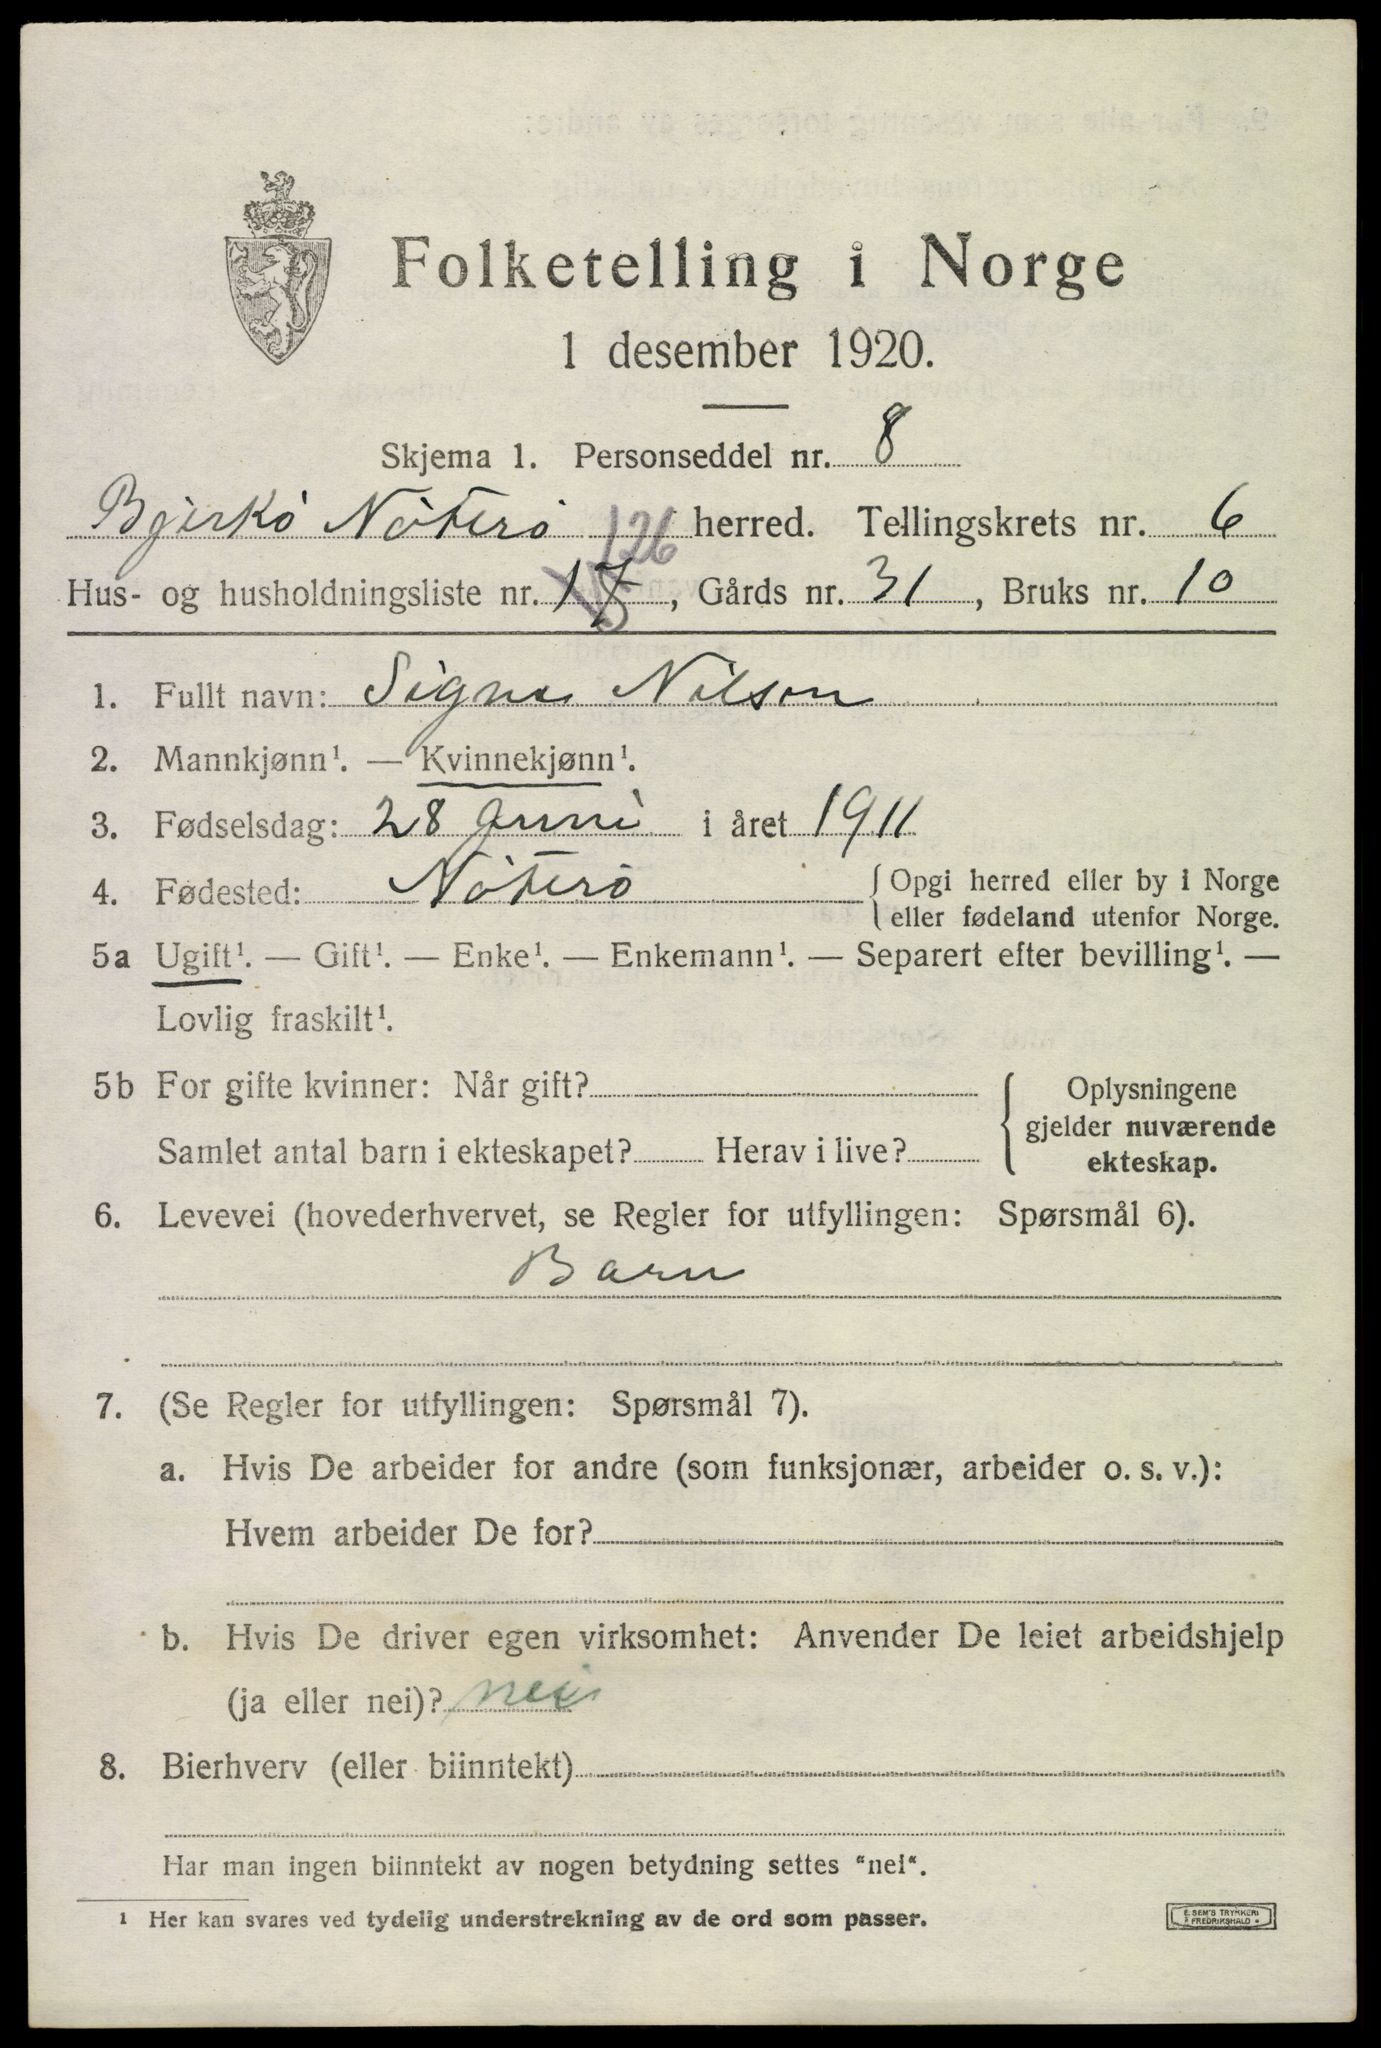 Folketelling i Norge
1 desember 1920.
Skjema 1. Personseddel nr. 8
Bjerkö Nöterö herred. Tellingskrets nr. 6
126
Hus- og husholdningsliste nr. 17, Gårds nr. 31, Bruks nr. 10
1. Fullt navn: Signe Nilson
2. Mannkjønn¹. — Kvinnekjønn¹.
3. Fødselsdag: 28 Juni i året 1911
4. Fødested: Nöterö { Opgi herred eller by i Norge
eller fødeland utenfor Norge.
5a Ugift¹. — Gift¹. — Enke¹. — Enkemann¹. — Separert efter bevilling¹. —
Lovlig fraskilt¹.
5b For gifte kvinner: Når gift? { Oplysningene
gjelder nuværende
Samlet antal barn i ekteskapet? Herav i live? ekteskap.
6. Levevei (hovederhvervet, se Regler for utfyllingen: Spørsmål 6).
Barn
7. (Se Regler for utfyllingen: Spørsmål 7).
a. Hvis De arbeider for andre (som funksjonær, arbeider o. s. v.):
Hvem arbeider De for?
b. Hvis De driver egen virksomhet: Anvender De leiet arbeidshjelp
(ja eller nei)? nei
8. Bierhverv (eller biinntekt)
Har man ingen biinntekt av nogen betydning settes "nei".
¹ Her kan svares ved tydelig understrekning av de ord som passer.
E. SEM'S TRYKKERI
FREDRIKSHALD